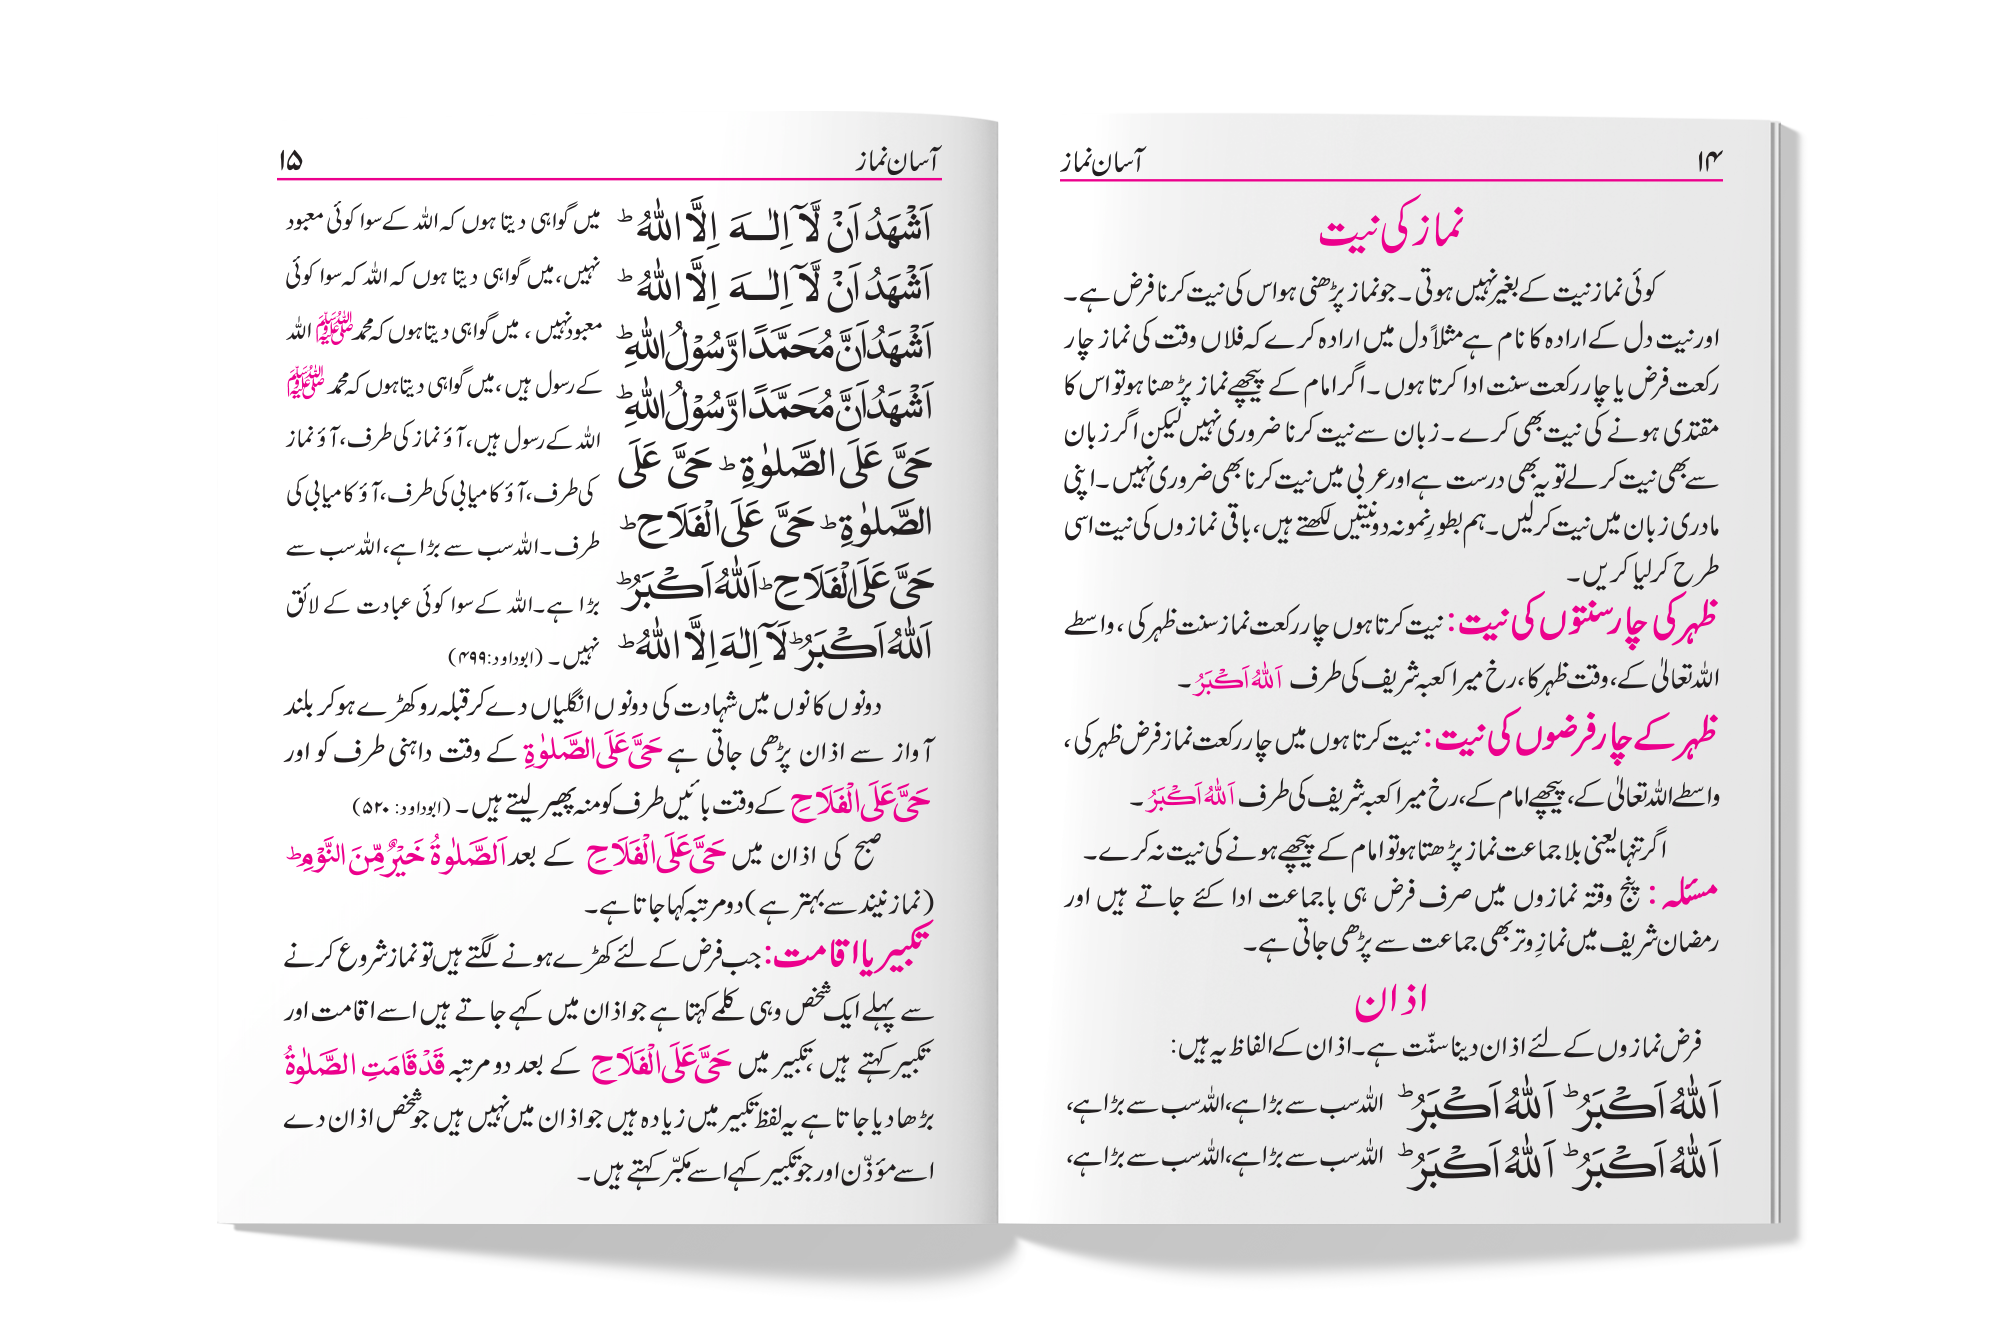 ۱۴ آسان نماز
نماز کی نیت
کوئی نماز نیت کے بغیر نہیں ہوتی۔ جو نماز پڑھنی ہو اس کی نیت کرنا فرض ہے۔
اور نیت دل کے ارادہ کا نام ہے مثلاً دل میں ارادہ کرے کہ فلاں وقت کی نماز چار
رکعت فرض یا چار رکعت سنت ادا کرتا ہوں۔ اگر امام کے پیچھے نماز پڑھنا ہو تو اس کا
مقتدی ہونے کی نیت بھی کرے۔ زبان سے نیت کرنا ضروری نہیں لیکن اگر زبان
سے بھی نیت کر لے تو یہ بھی درست ہے اور عربی میں نیت کرنا بھی ضروری نہیں۔ اپنی
مادری زبان میں نیت کرلیں۔ ہم بطورِ نمونہ دو نیتیں لکھتے ہیں، باقی نمازوں کی نیت اسی
طرح کر لیا کریں۔
ظہر کی چار سنتوں کی نیت: نیت کرتا ہوں چار رکعت نماز سنت ظہر کی، واسطے
اللہ تعالیٰ کے، وقت ظہر کا، رخ میرا کعبہ شریف کی طرف اَللّٰهُ اَكْبَرُ۔
ظہر کے چار فرضوں کی نیت: نیت کرتا ہوں میں چار رکعت نماز فرض ظہر کی،
واسطے اللہ تعالیٰ کے، پیچھے امام کے، رخ میرا کعبہ شریف کی طرف اَللّٰهُ اَكْبَرُ۔
اگر تنہا یعنی بلا جماعت نماز پڑھتا ہو تو امام کے پیچھے ہونے کی نیت نہ کرے۔
مسئلہ: پنج وقتہ نمازوں میں صرف فرض ہی با جماعت ادا کئے جاتے ہیں اور
رمضان شریف میں نمازِ وتر بھی جماعت سے پڑھی جاتی ہے۔
اذان
فرض نمازوں کے لئے اذان دینا سنّت ہے۔ اذان کے الفاظ یہ ہیں:
اَللّٰهُ اَكْبَرُ ؕ اَللّٰهُ اَكْبَرُ ؕ اللہ سب سے بڑا ہے، اللہ سب سے بڑا ہے،
اَللّٰهُ اَكْبَرُ ؕ اَللّٰهُ اَكْبَرُ ؕ اللہ سب سے بڑا ہے، اللہ سب سے بڑا ہے،
آسان نماز ۱۵
اَشْهَدُ اَنْ لَّآ اِلٰهَ اِلَّا اللّٰهُ ؕ
اَشْهَدُ اَنْ لَّآ اِلٰهَ اِلَّا اللّٰهُ ؕ
اَشْهَدُ اَنَّ مُحَمَّدًا رَّسُوْلُ اللّٰهِ ؕ
اَشْهَدُ اَنَّ مُحَمَّدًا رَّسُوْلُ اللّٰهِ ؕ
حَیَّ عَلَی الصَّلٰوةِ ؕ حَیَّ عَلَی
الصَّلٰوةِ ؕ حَیَّ عَلَی الْفَلَاحِ ؕ
حَیَّ عَلَی الْفَلَاحِ ؕ اَللّٰهُ اَكْبَرُ ؕ
اَللّٰهُ اَكْبَرُ ؕ لَآ اِلٰهَ اِلَّا اللّٰهُ ؕ
میں گواہی دیتا ہوں کہ اللہ کے سوا کوئی معبود
نہیں، میں گواہی دیتا ہوں کہ اللہ کہ سوا کوئی
معبود نہیں، میں گواہی دیتا ہوں کہ محمد ﷺ اللہ
کے رسول ہیں، میں گواہی دیتا ہوں کہ محمد ﷺ
اللہ کے رسول ہیں، آؤ نماز کی طرف، آؤ نماز
کی طرف، آؤ کامیابی کی طرف، آؤ کامیابی کی
طرف۔ اللہ سب سے بڑا ہے، اللہ سب سے
بڑا ہے۔ اللہ کے سوا کوئی عبادت کے لائق
نہیں۔ (ابوداود: ۴۹۹)
دونوں کانوں میں شہادت کی دونوں انگلیاں دے کر قبلہ رو کھڑے ہو کر بلند
آواز سے اذان پڑھی جاتی ہے حَیَّ عَلَی الصَّلٰوةِ کے وقت داہنی طرف کو اور
حَیَّ عَلَی الْفَلَاحِ کے وقت بائیں طرف کو منہ پھیر لیتے ہیں۔ (ابوداود: ۵۲۰)
صبح کی اذان میں حَیَّ عَلَی الْفَلَاحِ کے بعد اَلصَّلٰوةُ خَيْرٌ مِّنَ النَّوْمِ ؕ
(نماز نیند سے بہتر ہے) دو مرتبہ کہا جاتا ہے۔
تکبیر یا اقامت: جب فرض کے لئے کھڑے ہونے لگتے ہیں تو نماز شروع کرنے
سے پہلے ایک شخص وہی کلمے کہتا ہے جو اذان میں کہے جاتے ہیں اسے اقامت اور
تکبیر کہتے ہیں، تکبیر میں حَیَّ عَلَی الْفَلَاحِ کے بعد دو مرتبہ قَدْ قَامَتِ الصَّلٰوةُ
بڑھا دیا جاتا ہے یہ لفظ تکبیر میں زیادہ ہیں جو اذان میں نہیں ہیں جو شخص اذان دے
اسے مؤذّن اور جو تکبیر کہے اسے مکبّر کہتے ہیں۔